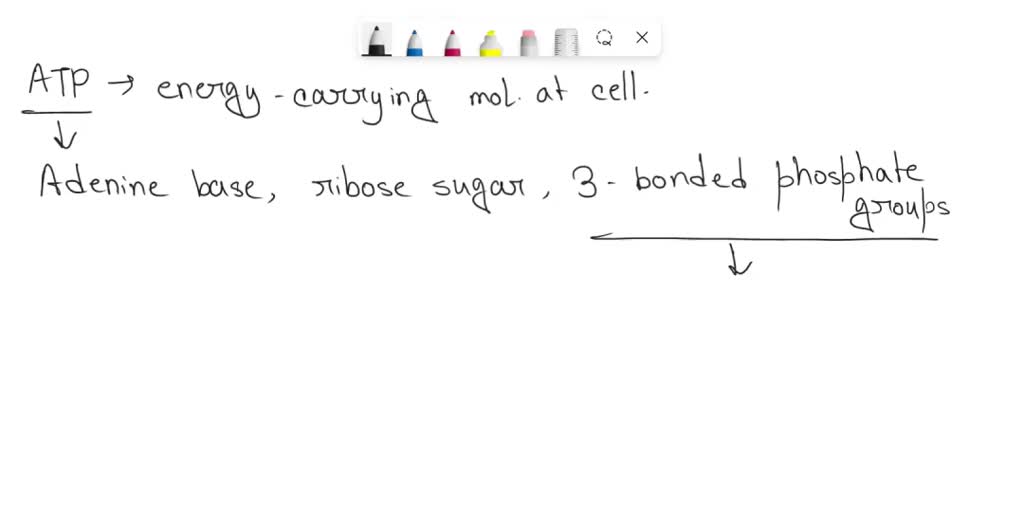 ATP → energy-carrying mol. at cell.
↓
Adenine base, ribose sugar, 3-bonded phosphate
groups
↓